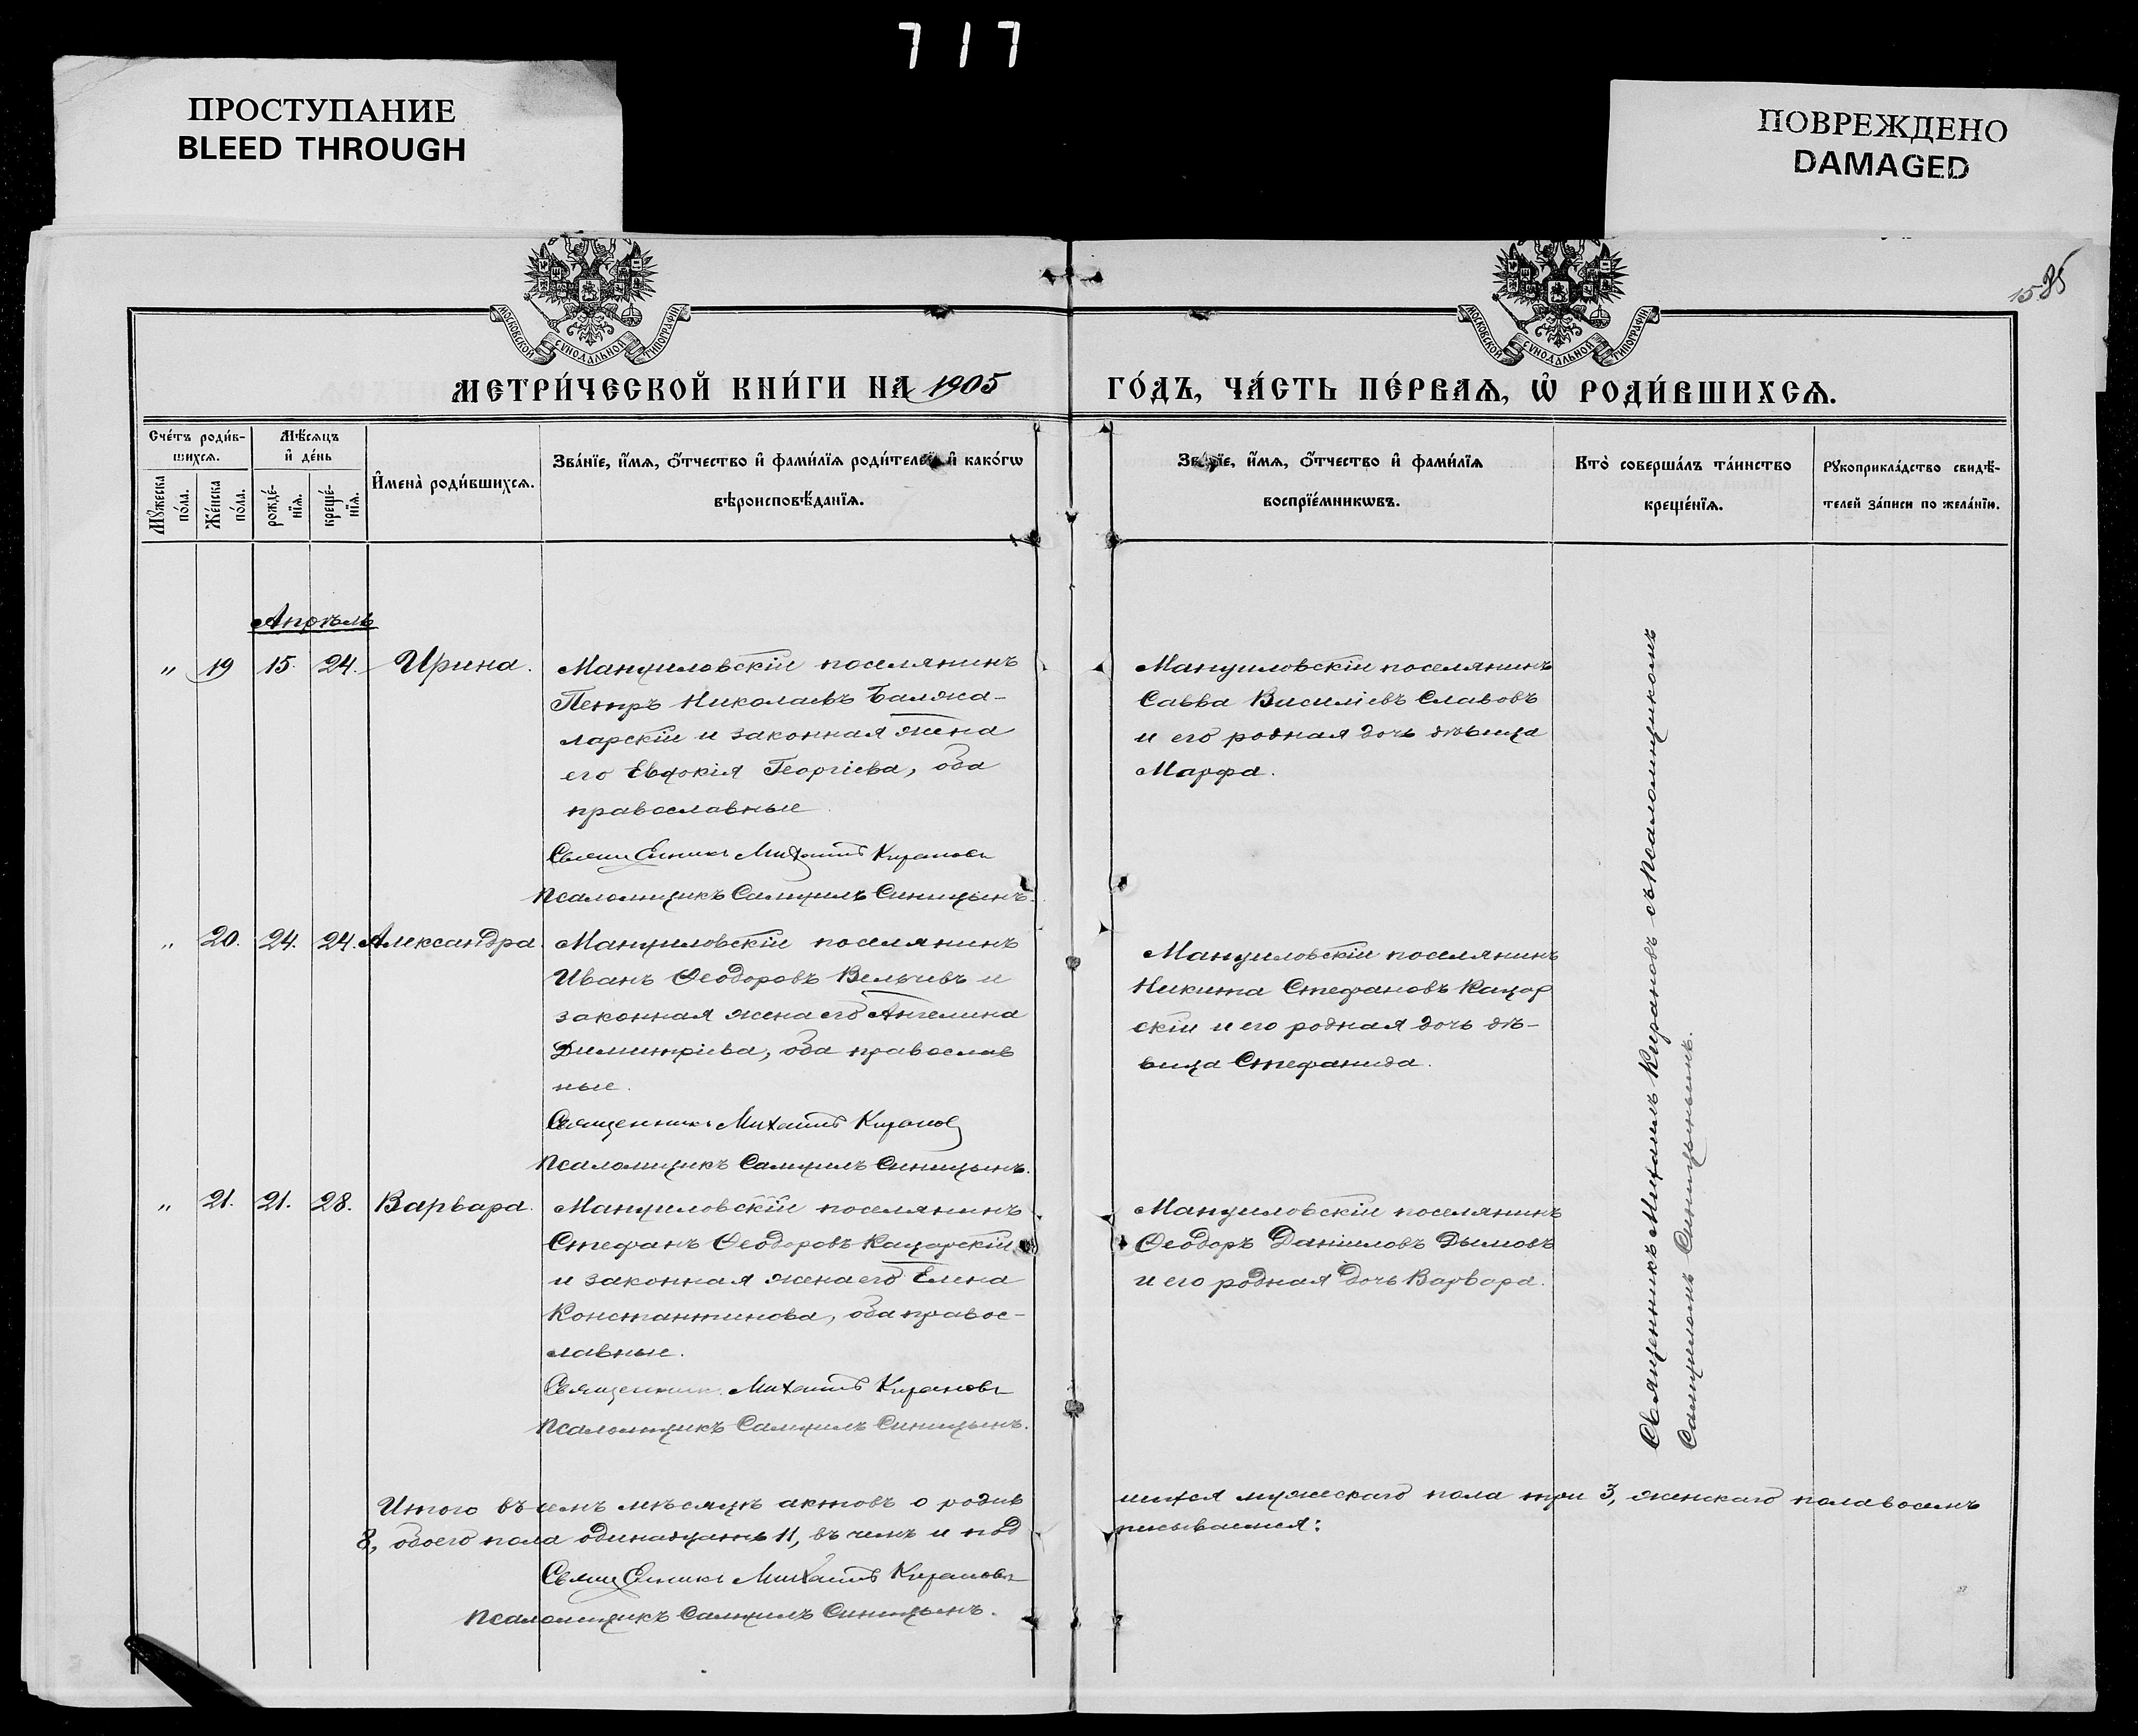 717
ПРОСТУПАНИЕ
BLEED THROUGH
ПОВРЕЖДЕНО
DAMAGED
МОСКОВСКОЙ СѴНОДАЛЬНОЙ ТИПОГРАФІИ
МОСКОВСКОЙ СѴНОДАЛЬНОЙ ТИПОГРАФІИ
1585
МЕТРИ́ЧЕСКОЙ КНИ́ГИ НА 1905
ГО́ДЪ, ЧА́СТЬ ПЕ́РВАѦ, Ѡ҆ РОДИ́ВШИХСѦ.
Сче́тъ роди́в-
шихсѧ.
Мꙋжеска по́ла.
Же́нска по́ла.
Мѣ́сѧцъ
и҆ де́нь
рожде́-
нїѧ.
креще́-
нїѧ.
И҆мена̀ роди́вшихсѧ.
Зва́нїе, и҆́мѧ, ѻ҆́тчество и҆ фами́лїѧ роди́телей и҆ како́гѡ
вѣроисповѣ́данїѧ.
Зва́нїе, и҆́мѧ, ѻ҆́тчество и҆ фами́лїѧ
воспрїе́мникѡвъ.
Кто̀ соверша́лъ та́инство
креще́нїѧ.
Рꙋкоприкла́дство свидѣ́-
телей за́писи по жела́нїю.
Апрѣль
" 19 15. 24. Ирина.
Мануиловскій поселянинъ
Петръ Николаевъ Балжа-
ларскій и законная жена
его Евдокія Георгіева, оба
православные.
Священникъ Михаилъ Кирановъ
Псаломщикъ Самуилъ Синицынъ.
Мануиловскій поселянинъ
Савва Василіевъ Славовъ
и его родная дочь дѣвица
Марфа.
" 20. 24. 24. Александра.
Мануиловскій поселянинъ
Иванъ Ѳеодоровъ Вельчевъ и
законная жена его Ангелина
Димитріева, оба православ
ные.
Священникъ Михаилъ Киранов
Псаломщикъ Самуилъ Синицынъ.
Мануиловскій поселянинъ
Никита Стефановъ Кацар
скій и его родная дочь дѣ-
вица Стефанида.
" 21. 21. 28. Варвара.
Мануиловскій поселянинъ
Стефанъ Ѳеодоровъ Кацарскій
и законная жена его Елена
Константинова, оба правос-
лавные.
Священникъ Михаилъ Кирановъ
Псаломщикъ Самуилъ Синицынъ.
Мануиловскій поселянинъ
Ѳеодоръ Даниловъ Дымовъ
и его родная дочь Варвара.
Священникъ Михаилъ Кирановъ съ Псаломщикомъ
Самуиломъ Синицынымъ.
Итого въ семъ мѣсяцѣ актовъ о родив
шихся мужескаго пола три 3, женскаго пола восемь
8, обоего пола одинадцать 11, въ чемъ и под
писываемся:
Священникъ Михаилъ Кирановъ
Псаломщикъ Самуилъ Синицынъ.